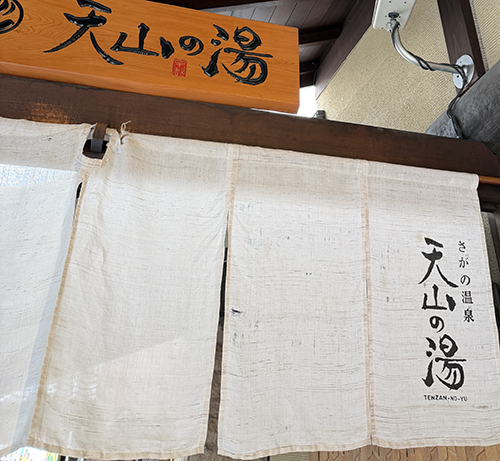 天山の湯
さがの温泉
天山の湯
TENZAN-NO-YU